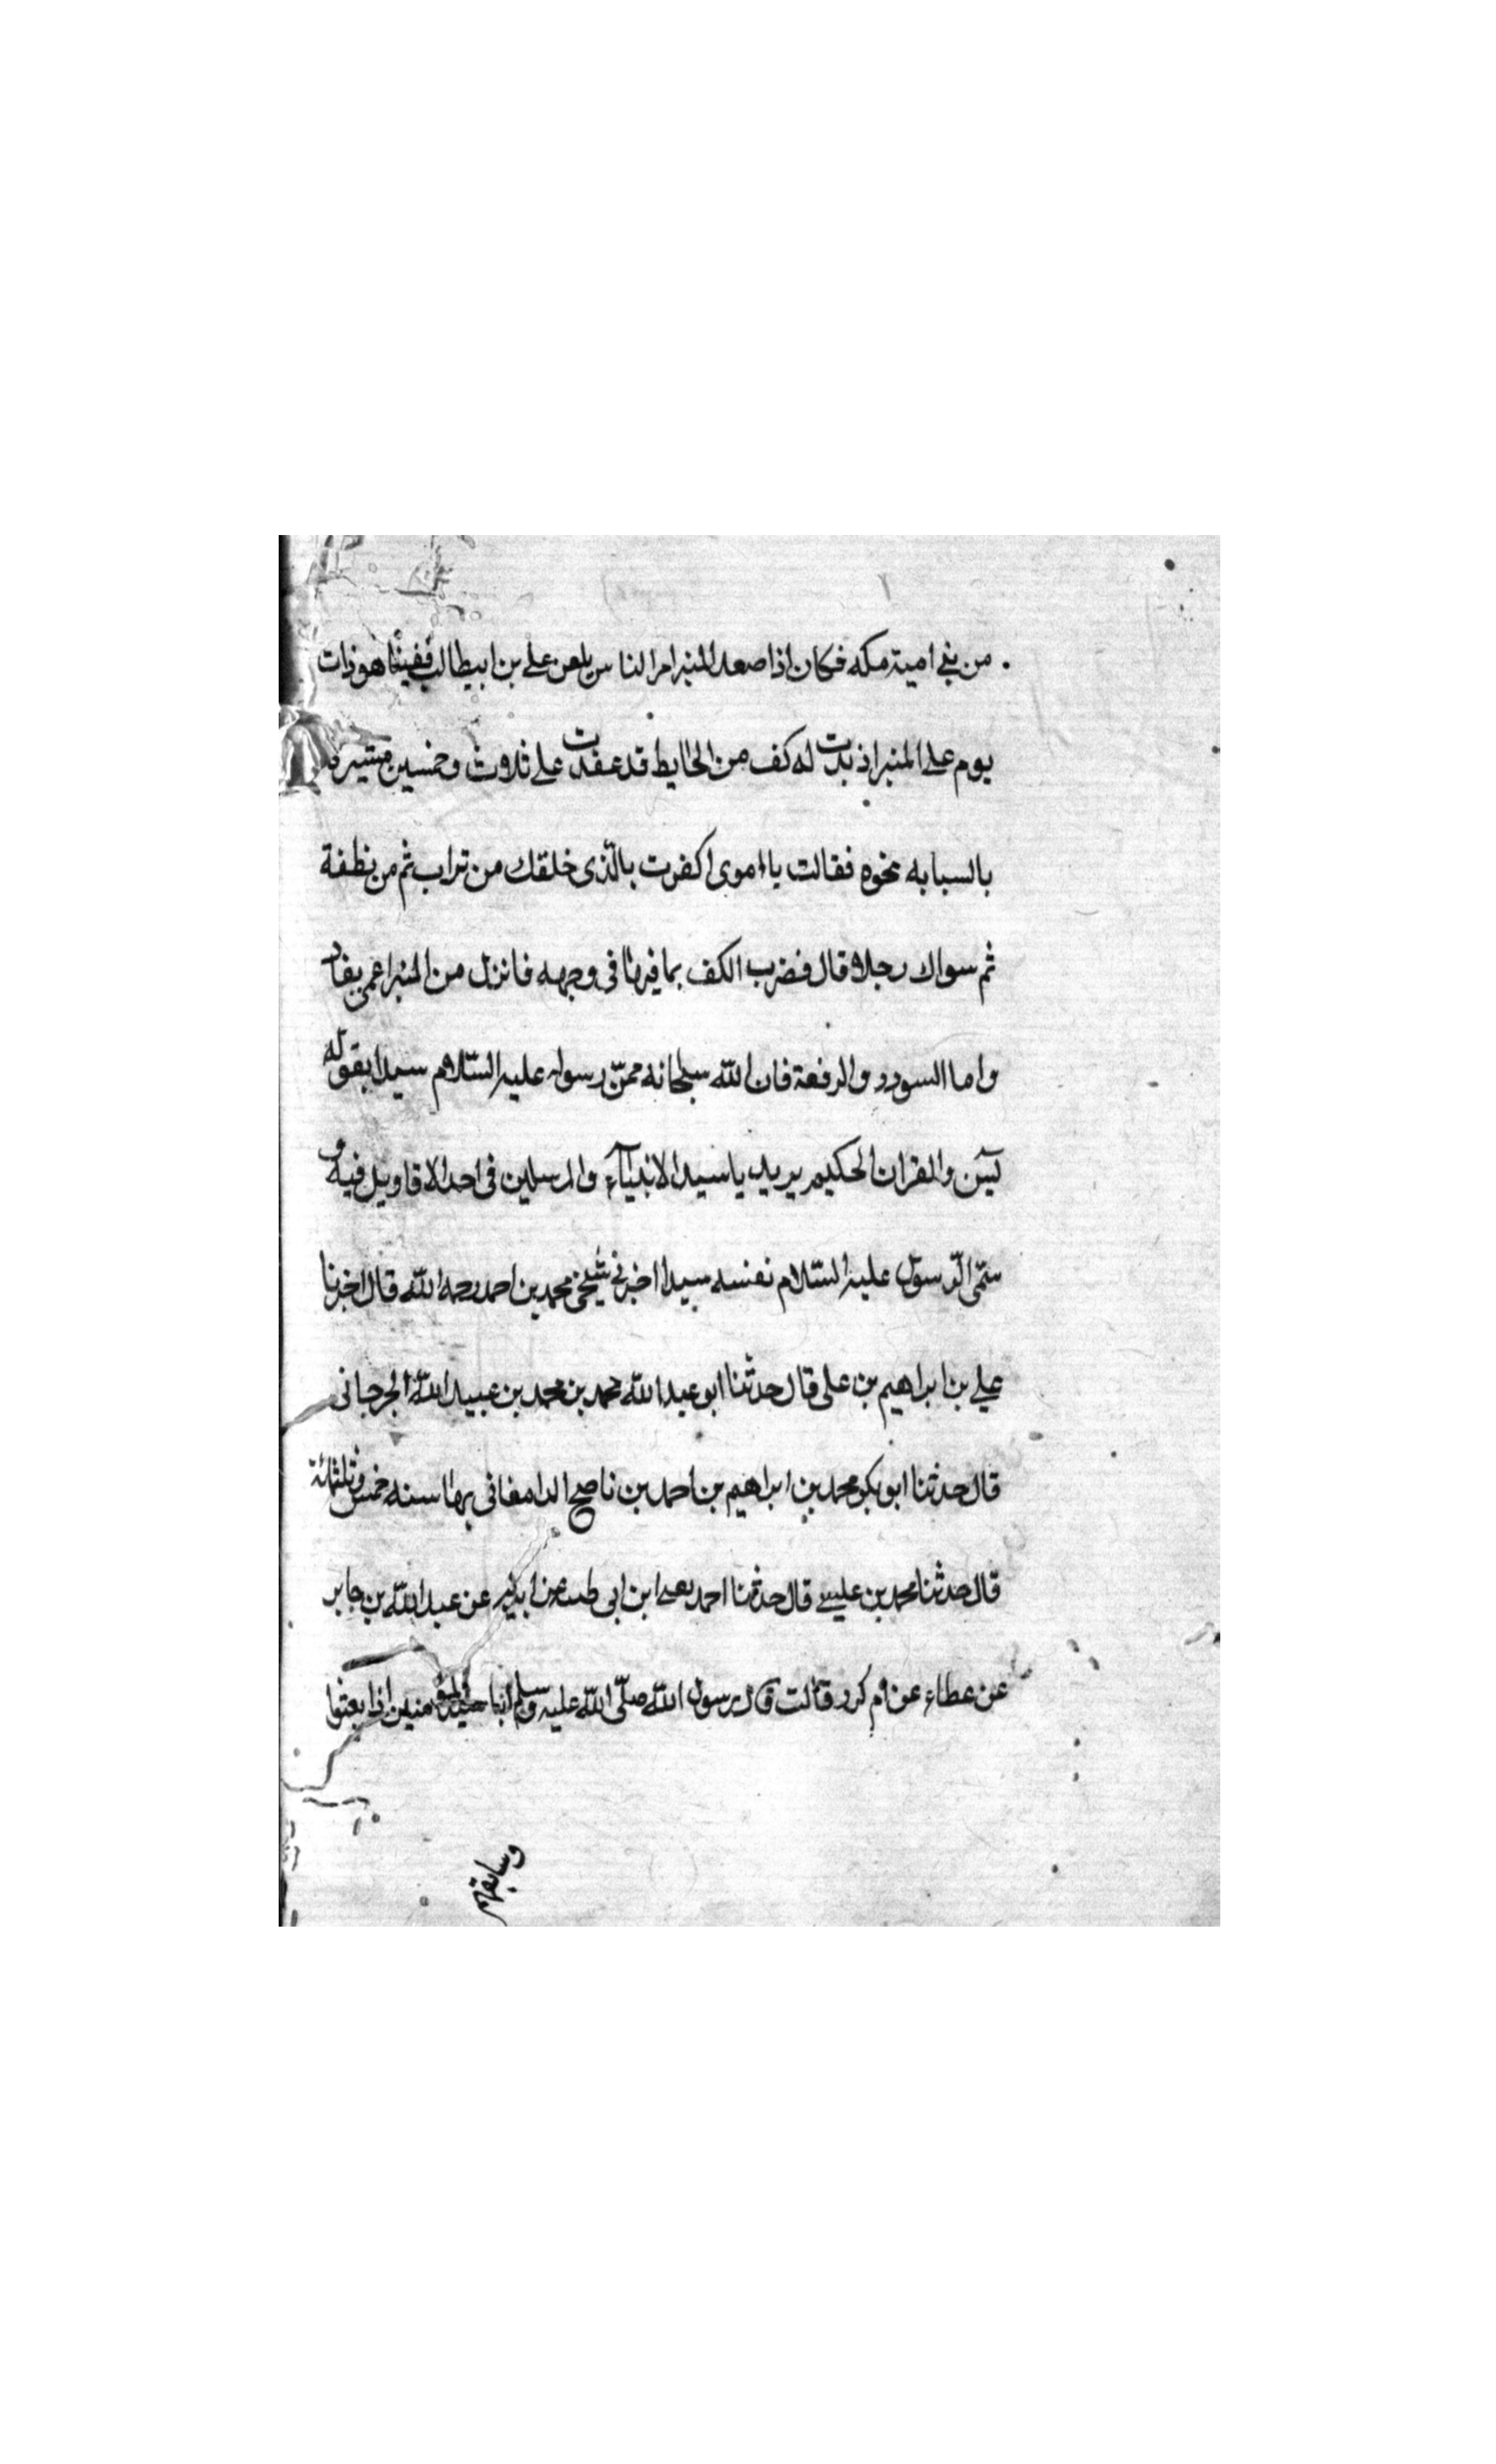 من بنی امیة مکه فکان اذا صعد المنبر امر الناس بلعن علی بن ابیطالب فبینا هو ذات
یوم علی المنبر اذ بدت له کف من الحایط قد عقدت علی ثلاث وخمسین مشیرة
بالسبابه نحوه فقالت یا اموی اکفرت بالذی خلقک من تراب ثم من نطفة
ثم سواک رجلا قال فضرب الکف بما فیها فی وجهه فانزل من المنبر اعمی یقاد
واما السودد والرفعة فان الله سبحانه رسوله علیه السّلام سیدا بقوله
یٓس والقران الحکیم یرید یا سید الانبیآء والمرسلین فی احد الاقاویل فیه و
سمّی الرّسول علیه السّلام نفسه سیدا اخبرنی شیخی محمد بن احمد رحمه الله قال اخبرنا
علی بن ابراهیم بن علی قال حدثنا ابو عبد الله محمد بن محمد بن عبید الله الجرجانی
قال حدثنا ابو بکر محمد بن ابراهیم بن احمد بن ناصح الدامغانی بها سنه خمس وثلثمائة
قال حدثنا محمد بن عیسی قال حدثنا احمد ابن ابی عن ابیه عن عبد الله بن جابر
عن عطاء عن ام کرز قالت قال رسول الله صلّی الله علیه وسلم انا سید المؤمنین اذا بعثوا
وسابقهم